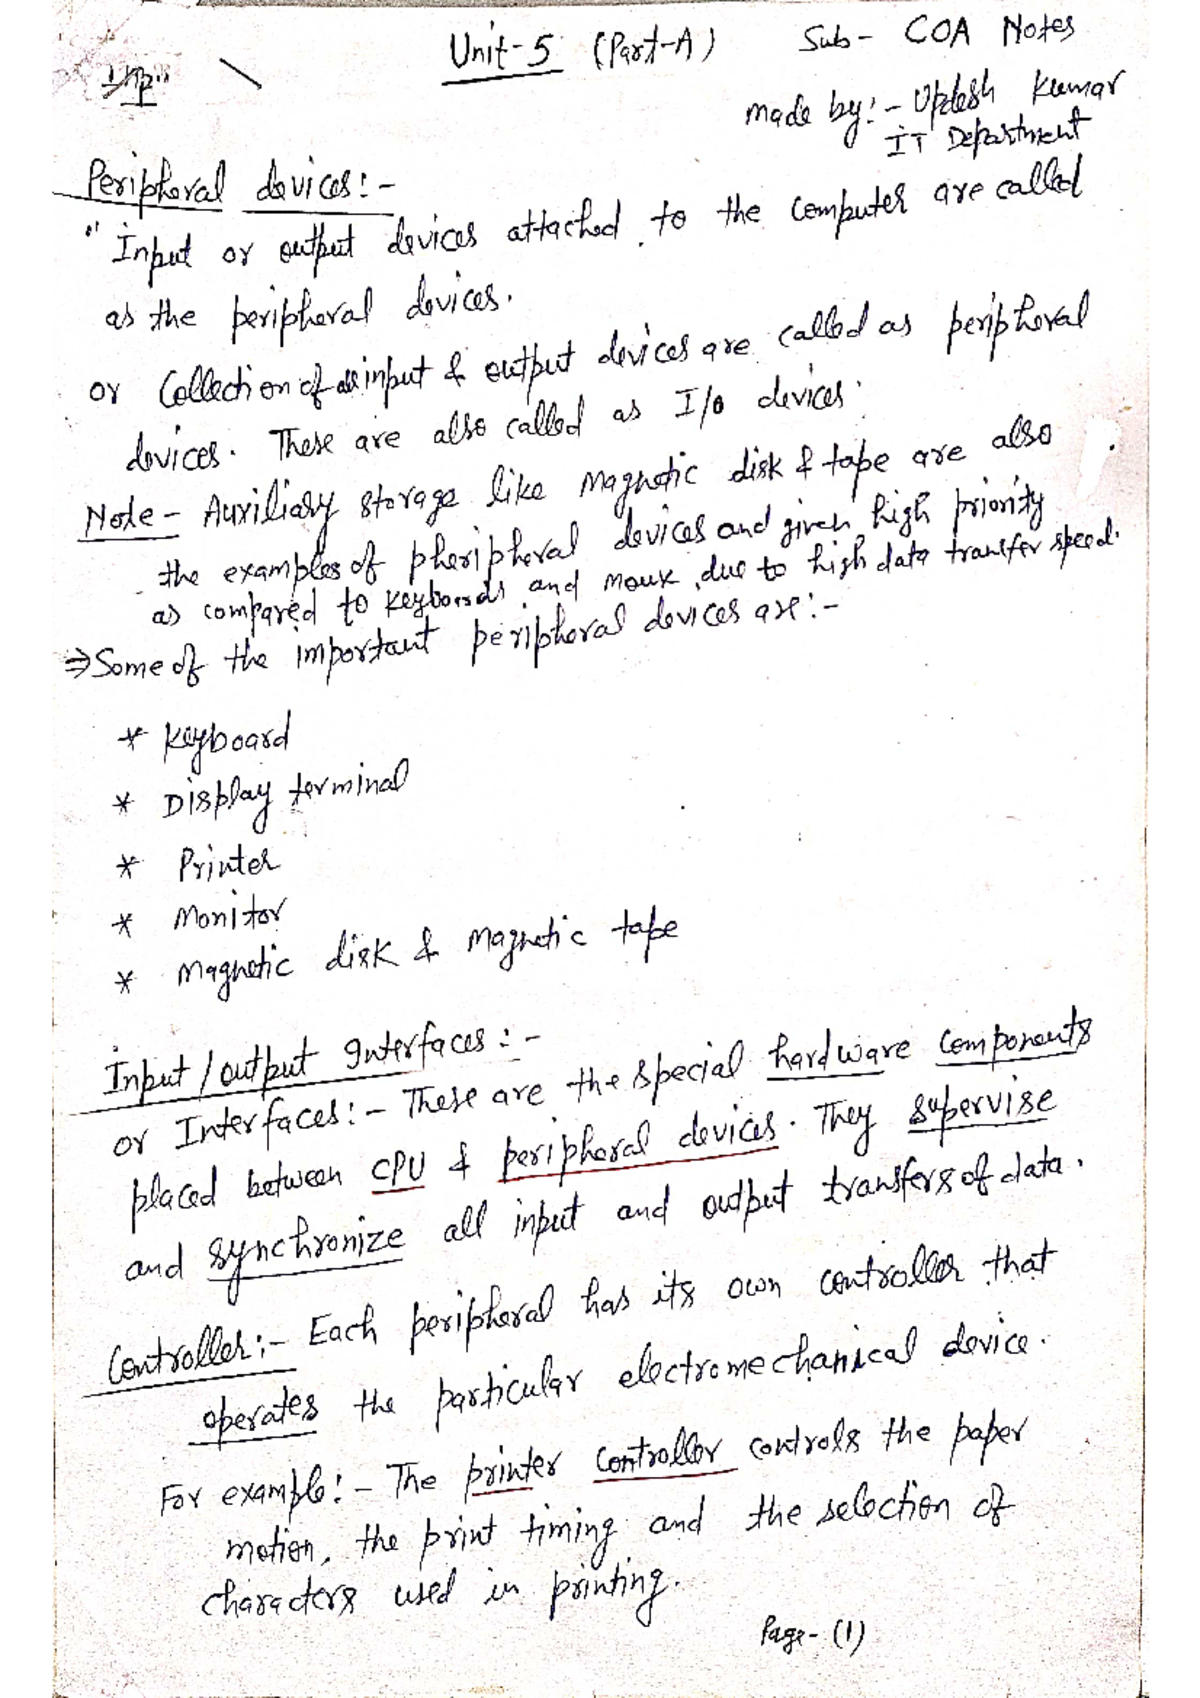 Unit-5 (Part-A) Sub- COA Notes
Made by:- Updesh Kumar
IT Department
Peripheral devices:-
"Input or output devices attached to the computer are called
as the peripheral devices.
or Collection of all input & output devices are called as peripheral
devices. These are also called as I/O devices.
Note- Auxiliary storage like Magnetic disk & tape are also
the examples of pheripheral devices and given high priority
as compared to keyboards and mouse, due to high data transfer speed.
⇒ Some of the important peripheral devices are:-
* Keyboard
* Display terminal
* Printer
* Monitor
* Magnetic disk & Magnetic tape
Input/output Interfaces:-
or Interfaces:- These are the special hardware components
placed between CPU & peripheral devices. They supervise
and synchronize all input and output transfers of data.
Controller:- Each peripheral has its own controller that
operates the particular electromechanical device.
For example:- The printer controller controls the paper
motion, the print timing and the selection of
characters used in printing.
Page-(1)